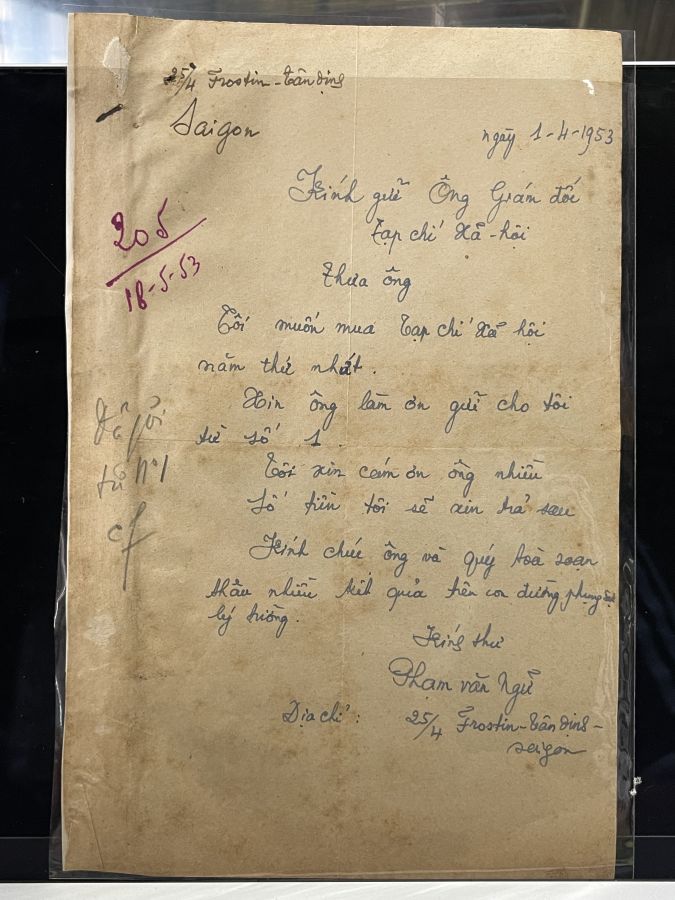 25/4 Frostin - Tân định
Saigon
ngày 1-4-1953
Kính gửi Ông Giám đốc
Tạp chí Xã-hội
205
18-5-53
Thưa ông
Tôi muốn mua Tạp chí Xã hội
năm thứ nhất.
Xin ông làm ơn gửi cho tôi
từ số 1
Đã gởi
từ No1
Tôi xin cám ơn ông nhiều
Số tiền tôi sẽ xin trả sau
Kính chúc ông và quý toà soạn
thâu nhiều kết quả trên con đường phụng sự
lý tưởng.
Kính thư
Phạm văn Ngữ
Địa chỉ: 25/4 Frostin - Tân định -
Saigon